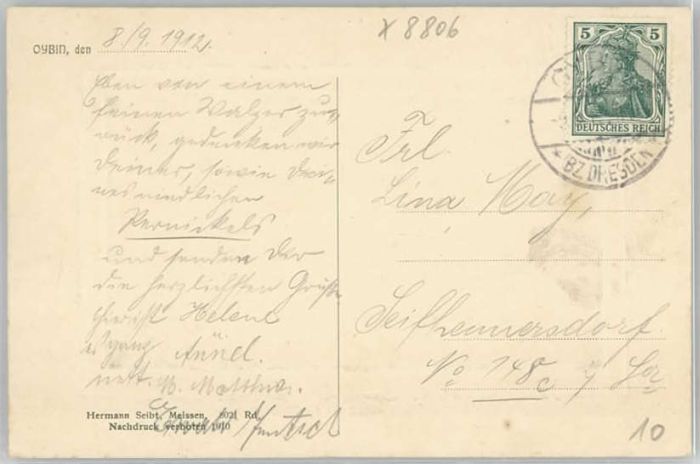 OYBIN, den 8./9. 1912.
X 8806
Eben von einem
feinen Walzer zu-
rück, gedenken wir
Deiner, sowie Dei-
nes niedlichen
Pernickels
und senden Dir
die herzlichsten Grüße
Helene
u. ganz
nett. M.
Hermann Seibt, Meissen, 8021 Rd.
Nachdruck verboten 1910
5 5
DEUTSCHES REICH
* BZ DRESDEN
Frl.
Lina May,
Seifhennersdorf.
No 148c
10